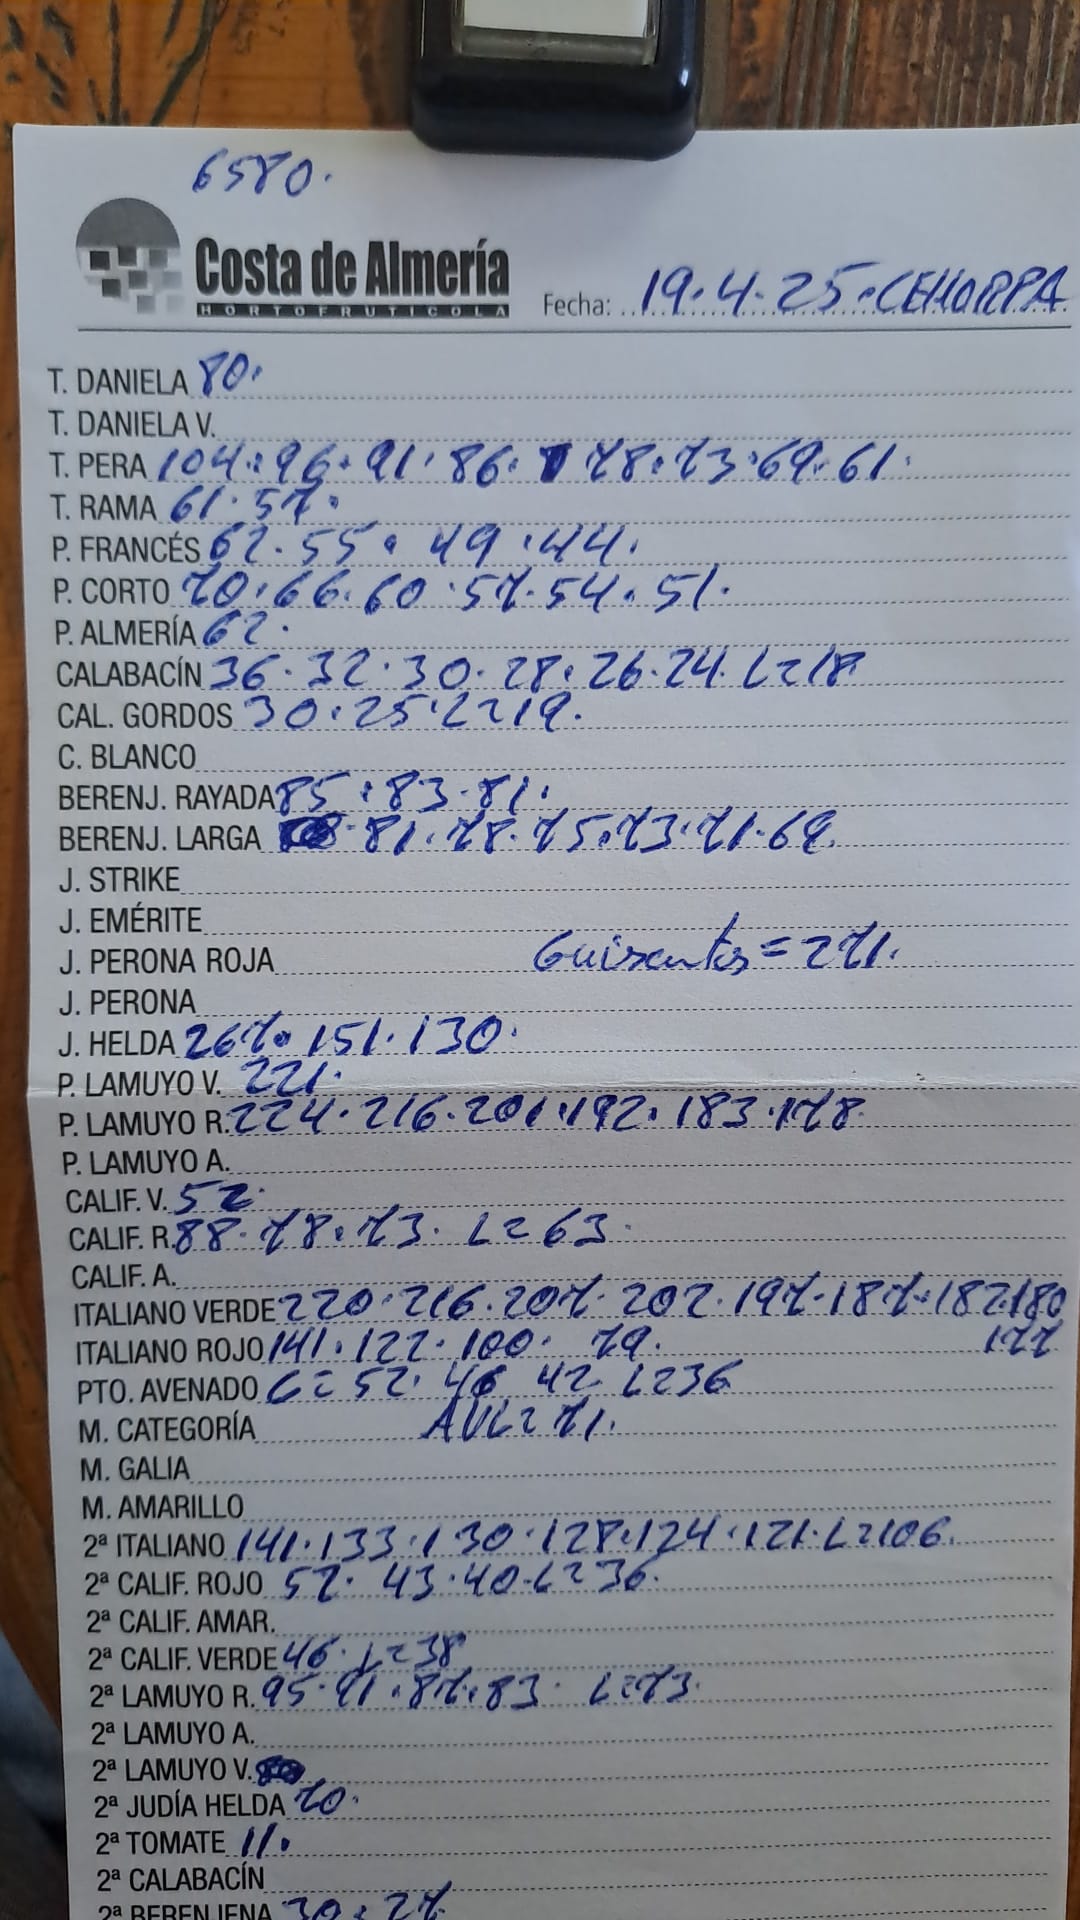 6580.
Costa de Almería
HORTOFRUTICOLA
Fecha: 19.4.25.CEHORPA
T. DANIELA 80.
T. DANIELA V.
T. PERA 104.96.91.86.78.73.69.61.
T. RAMA 61.57.
P. FRANCÉS 62.55.49.44.
P. CORTO 70.66.60.57.54.51.
P. ALMERÍA 62.
CALABACÍN 36.32.30.28.26.24.L=18
CAL. GORDOS 30.25.L=19.
C. BLANCO
BERENJ. RAYADA 85.83.81.
BERENJ. LARGA 81.78.75.73.71.69.
J. STRIKE
J. EMÉRITE
Guisantes=271.
J. PERONA ROJA
J. PERONA
J. HELDA 267.151.130.
P. LAMUYO V. 221.
P. LAMUYO R. 224.216.201.192.183.178
P. LAMUYO A.
CALIF. V. 52.
CALIF. R. 88.78.73. L=63.
CALIF. A.
ITALIANO VERDE 220.216.207.202.197.187.182.180
177
ITALIANO ROJO 141.122.100.79.
PTO. AVENADO G=52.46 42 L=36
M. CATEGORÍA AVL=71.
M. GALIA
M. AMARILLO
2ª ITALIANO 141.133.130.128.124.121.L=106.
2ª CALIF. ROJO 52.43.40.L=36.
2ª CALIF. AMAR.
2ª CALIF. VERDE 46.L=38
2ª LAMUYO R. 95.91.87.83. L=73.
2ª LAMUYO A.
2ª LAMUYO V.
2ª JUDÍA HELDA 70.
2ª TOMATE 11.
2ª CALABACÍN
2ª BERENJENA 30.27